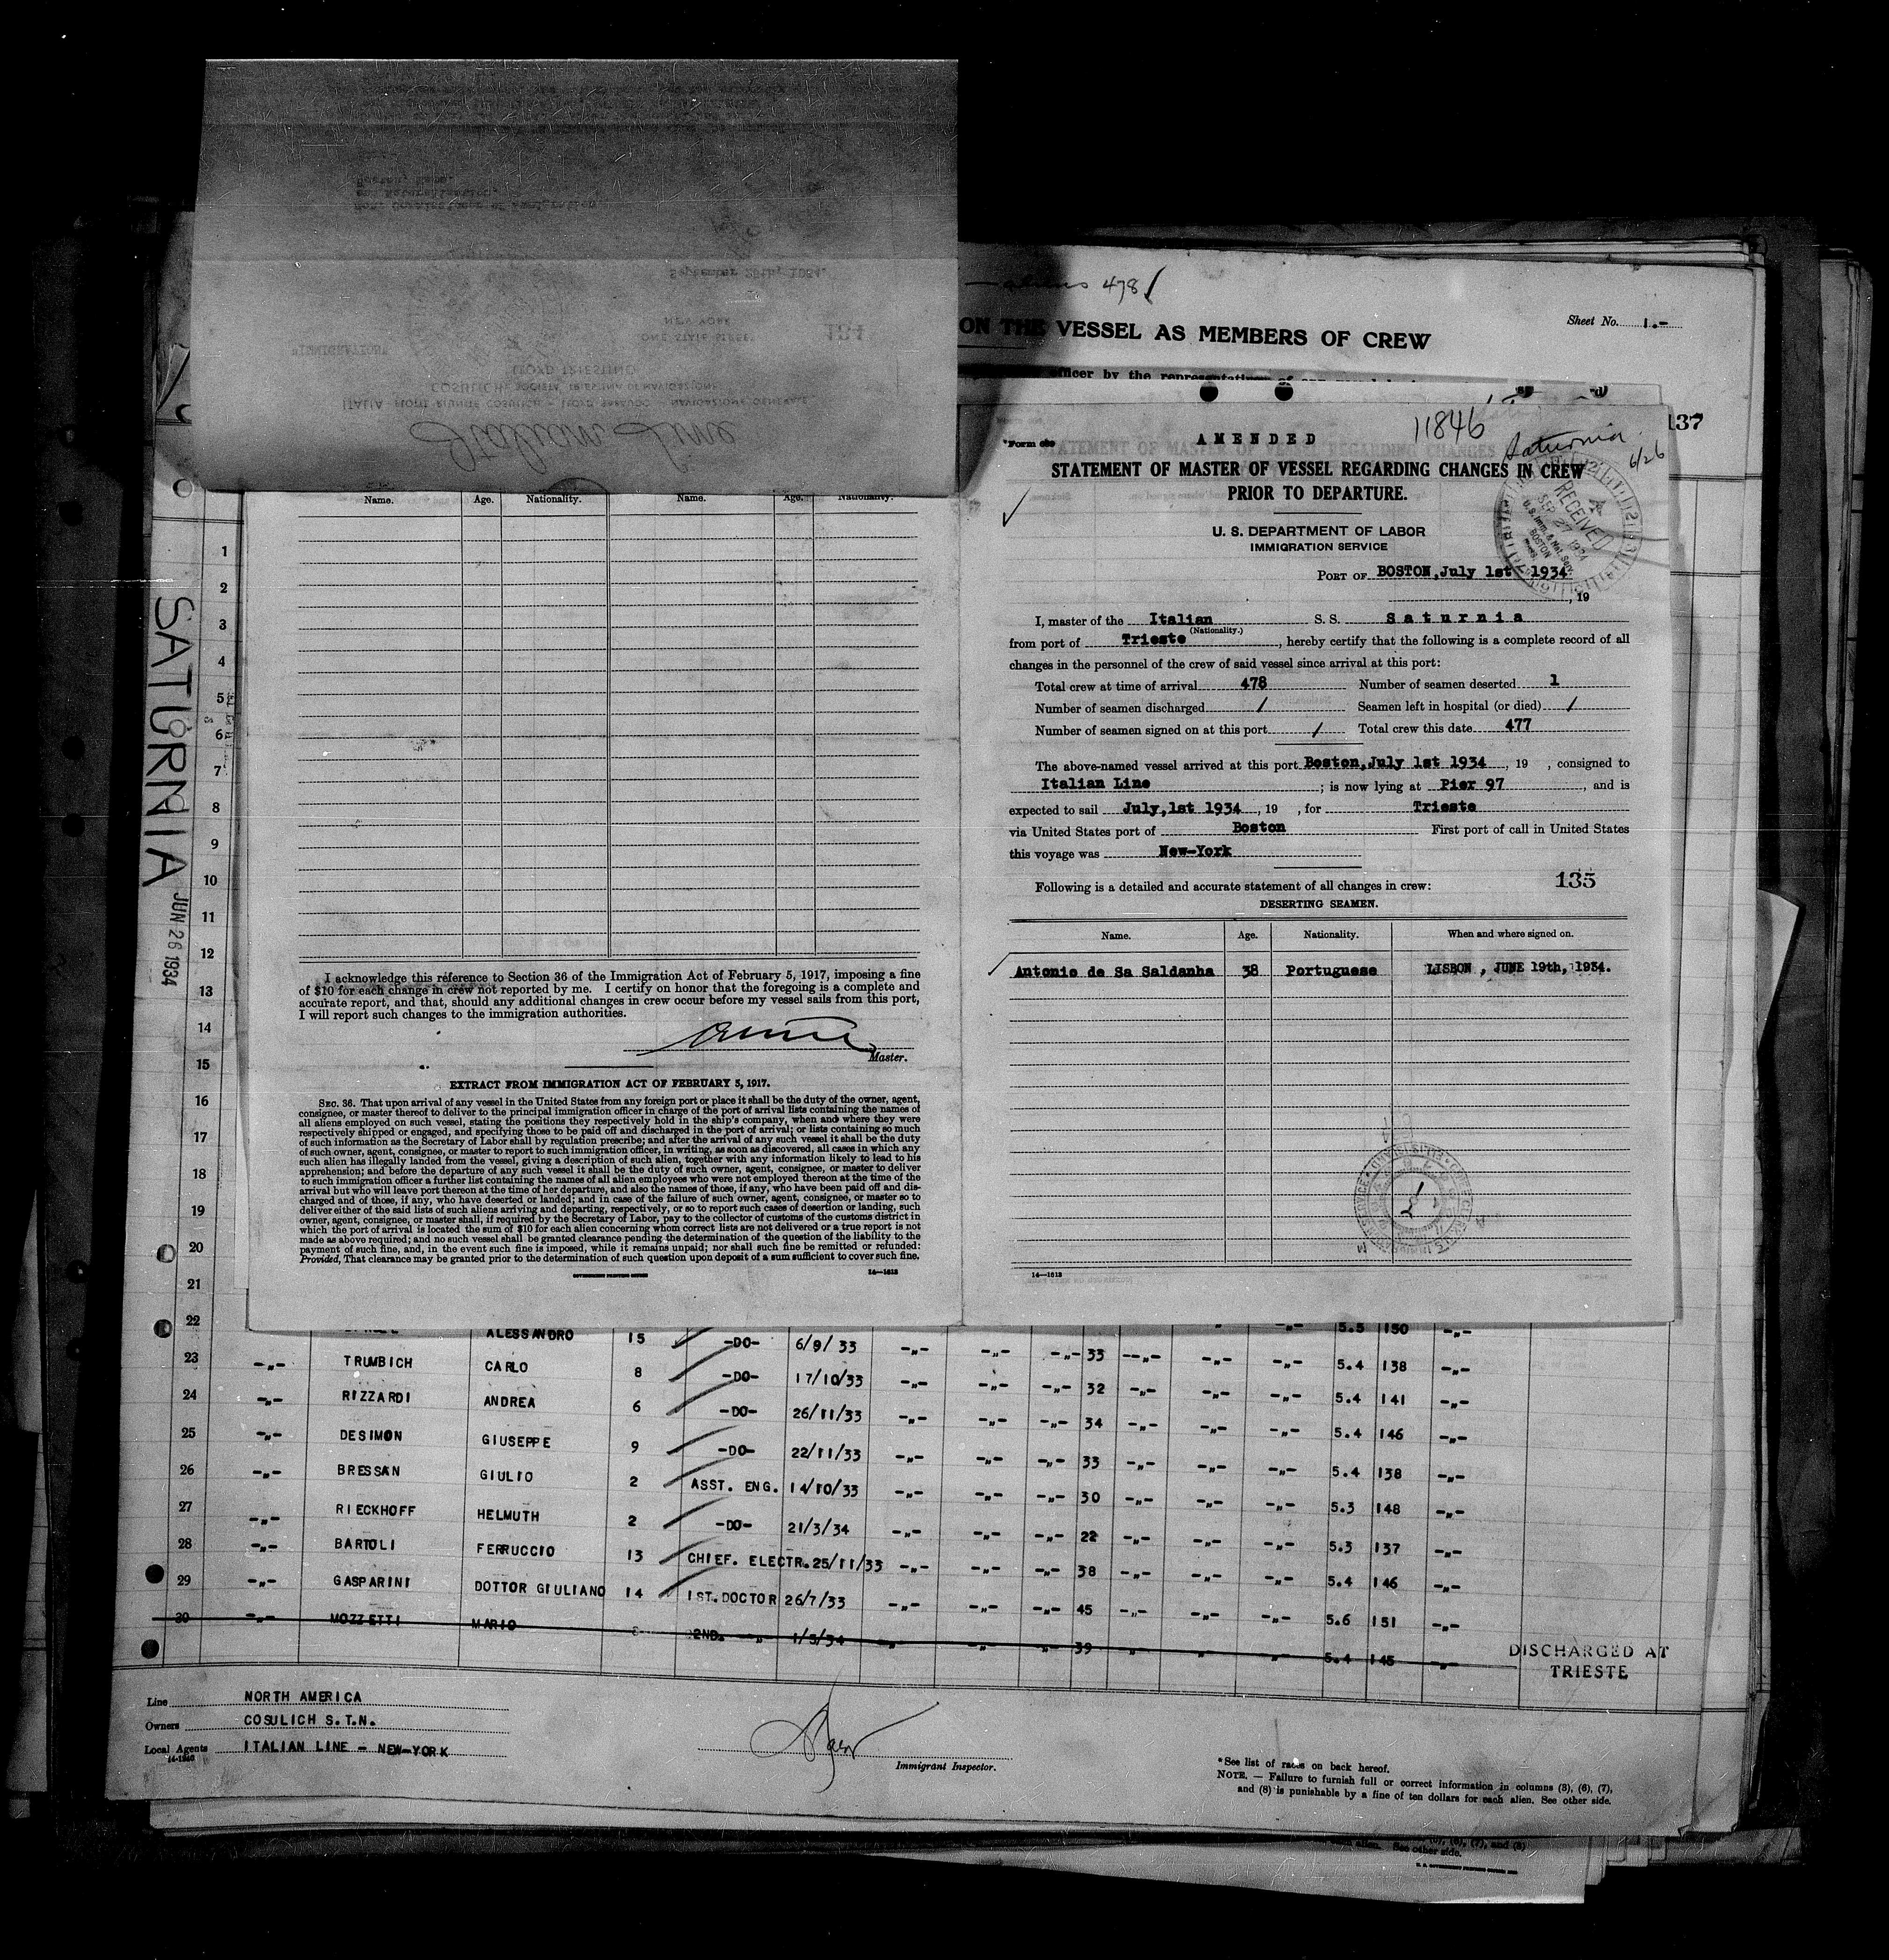 Italian Line
ITALIA
COSULICH
LLOYD TRIESTINO
ONE STATE STREET
NEW YORK
"IMMIGRATION"
134
September 26th, 1934.
Boston, Mass.
aliens 478
ON THE VESSEL AS MEMBERS OF CREW
Sheet No. 1.-
officer by the representatives of
137
11846
Saturnia
6/26
*Form 689
AMENDED
STATEMENT OF MASTER OF VESSEL REGARDING CHANGES IN CREW
PRIOR TO DEPARTURE.
RECEIVED
SEP 27 1934
U.S. Imm. & Nat. Serv.
BOSTON
MASS.
U. S. DEPARTMENT OF LABOR
IMMIGRATION SERVICE
PORT OF BOSTON, July 1st 1934
, 19
I, master of the Italian S. S. Saturnia
(Nationality.)
from port of Trieste, hereby certify that the following is a complete record of all
changes in the personnel of the crew of said vessel since arrival at this port:
Total crew at time of arrival 478 Number of seamen deserted 1
Number of seamen discharged / Seamen left in hospital (or died) /
Number of seamen signed on at this port / Total crew this date 477
The above-named vessel arrived at this port Boston, July 1st 1934, 19 , consigned to
Italian Line ; is now lying at Pier 97, and is
expected to sail July, 1st 1934, 19 , for Trieste
via United States port of Boston First port of call in United States
this voyage was New-York
135
Following is a detailed and accurate statement of all changes in crew:
DESERTING SEAMEN.
Name. Age. Nationality. When and where signed on.
Antonio de Sa Saldanha 38 Portuguese LISBON, JUNE 19th, 1934.
14—1613
Name. Age. Nationality. Name. Age. Nationality.
I acknowledge this reference to Section 36 of the Immigration Act of February 5, 1917, imposing a fine
of $10 for each change in crew not reported by me. I certify on honor that the foregoing is a complete and
accurate report, and that, should any additional changes in crew occur before my vessel sails from this port,
I will report such changes to the immigration authorities.
Master.
EXTRACT FROM IMMIGRATION ACT OF FEBRUARY 5, 1917.
SEC. 36. That upon arrival of any vessel in the United States from any foreign port or place it shall be the duty of the owner, agent,
consignee, or master thereof to deliver to the principal immigration officer in charge of the port of arrival lists containing the names of
all aliens employed on such vessel, stating the positions they respectively hold in the ship's company, when and where they were
respectively shipped or engaged, and specifying those to be paid off and discharged in the port of arrival; or lists containing so much
of such information as the Secretary of Labor shall by regulation prescribe; and after the arrival of any such vessel it shall be the duty
of such owner, agent, consignee, or master to report to such immigration officer, in writing, as soon as discovered, all cases in which any
such alien has illegally landed from the vessel, giving a description of such alien, together with any information likely to lead to his
apprehension; and before the departure of any such vessel it shall be the duty of such owner, agent, consignee, or master to deliver
to such immigration officer a further list containing the names of all alien employees who were not employed thereon at the time of the
arrival but who will leave port thereon at the time of her departure, and also the names of those, if any, who have been paid off and dis-
charged and of those, if any, who have deserted or landed; and in case of the failure of such owner, agent, consignee, or master so to
deliver either of the said lists of such aliens arriving and departing, respectively, or so to report such cases of desertion or landing, such
owner, agent, consignee, or master shall, if required by the Secretary of Labor, pay to the collector of customs of the customs district in
which the port of arrival is located the sum of $10 for each alien concerning whom correct lists are not delivered or a true report is not
made as above required; and no such vessel shall be granted clearance pending the determination of the question of the liability to the
payment of such fine, and, in the event such fine is imposed, while it remains unpaid; nor shall such fine be remitted or refunded:
Provided, That clearance may be granted prior to the determination of such question upon deposit of a sum sufficient to cover such fine.
GOVERNMENT PRINTING OFFICE 14—1613
SATURNIA
JUN 26 1934
1
2
3
4
5
6
7
8
9
10
11
12
13
14
15
16
17
18
19
20
21
22 ALESSANDRO 15 -DO- 6/9/33 -"- -"- -"- 33 -"- -"- -"- 5.5 150 -"-
23 -"- TRUMBICH CARLO 8 -DO- 17/10/33 -"- -"- -"- 32 -"- -"- -"- 5.4 138 -"-
24 -"- RIZZARDI ANDREA 6 -DO- 26/11/33 -"- -"- -"- 34 -"- -"- -"- 5.4 141 -"-
25 -"- DESIMON GIUSEPPE 9 -DO- 22/11/33 -"- -"- -"- 33 -"- -"- -"- 5.4 146 -"-
26 -"- BRESSAN GIULIO 2 ASST. ENG. 14/10/33 -"- -"- -"- 30 -"- -"- -"- 5.4 138 -"-
27 -"- RIECKHOFF HELMUTH 2 -DO- 21/3/34 -"- -"- -"- 22 -"- -"- -"- 5.3 148 -"-
28 -"- BARTOLI FERRUCCIO 13 CHIEF. ELECTR. 25/11/33 -"- -"- -"- 38 -"- -"- -"- 5.3 137 -"-
29 -"- GASPARINI DOTTOR GIULIANO 14 1ST. DOCTOR 26/7/33 -"- -"- -"- 45 -"- -"- -"- 5.4 146 -"-
5.6 151 -"-
30 -"- MOZZETTI MARIO 8 2ND. -"- 1/5/34 -"- -"- -"- 39 -"- -"- -"- 5.4 145 -"-
DISCHARGED AT
TRIESTE
Line NORTH AMERICA
Owners COSULICH S.T.N.
Local Agents ITALIAN LINE – NEW-YORK
14-1240
Immigrant Inspector.
*See list of races on back hereof.
NOTE. — Failure to furnish full or correct information in columns (3), (6), (7),
and (8) is punishable by a fine of ten dollars for each alien. See other side.
(6), (7), and (8)
alien. See other side.